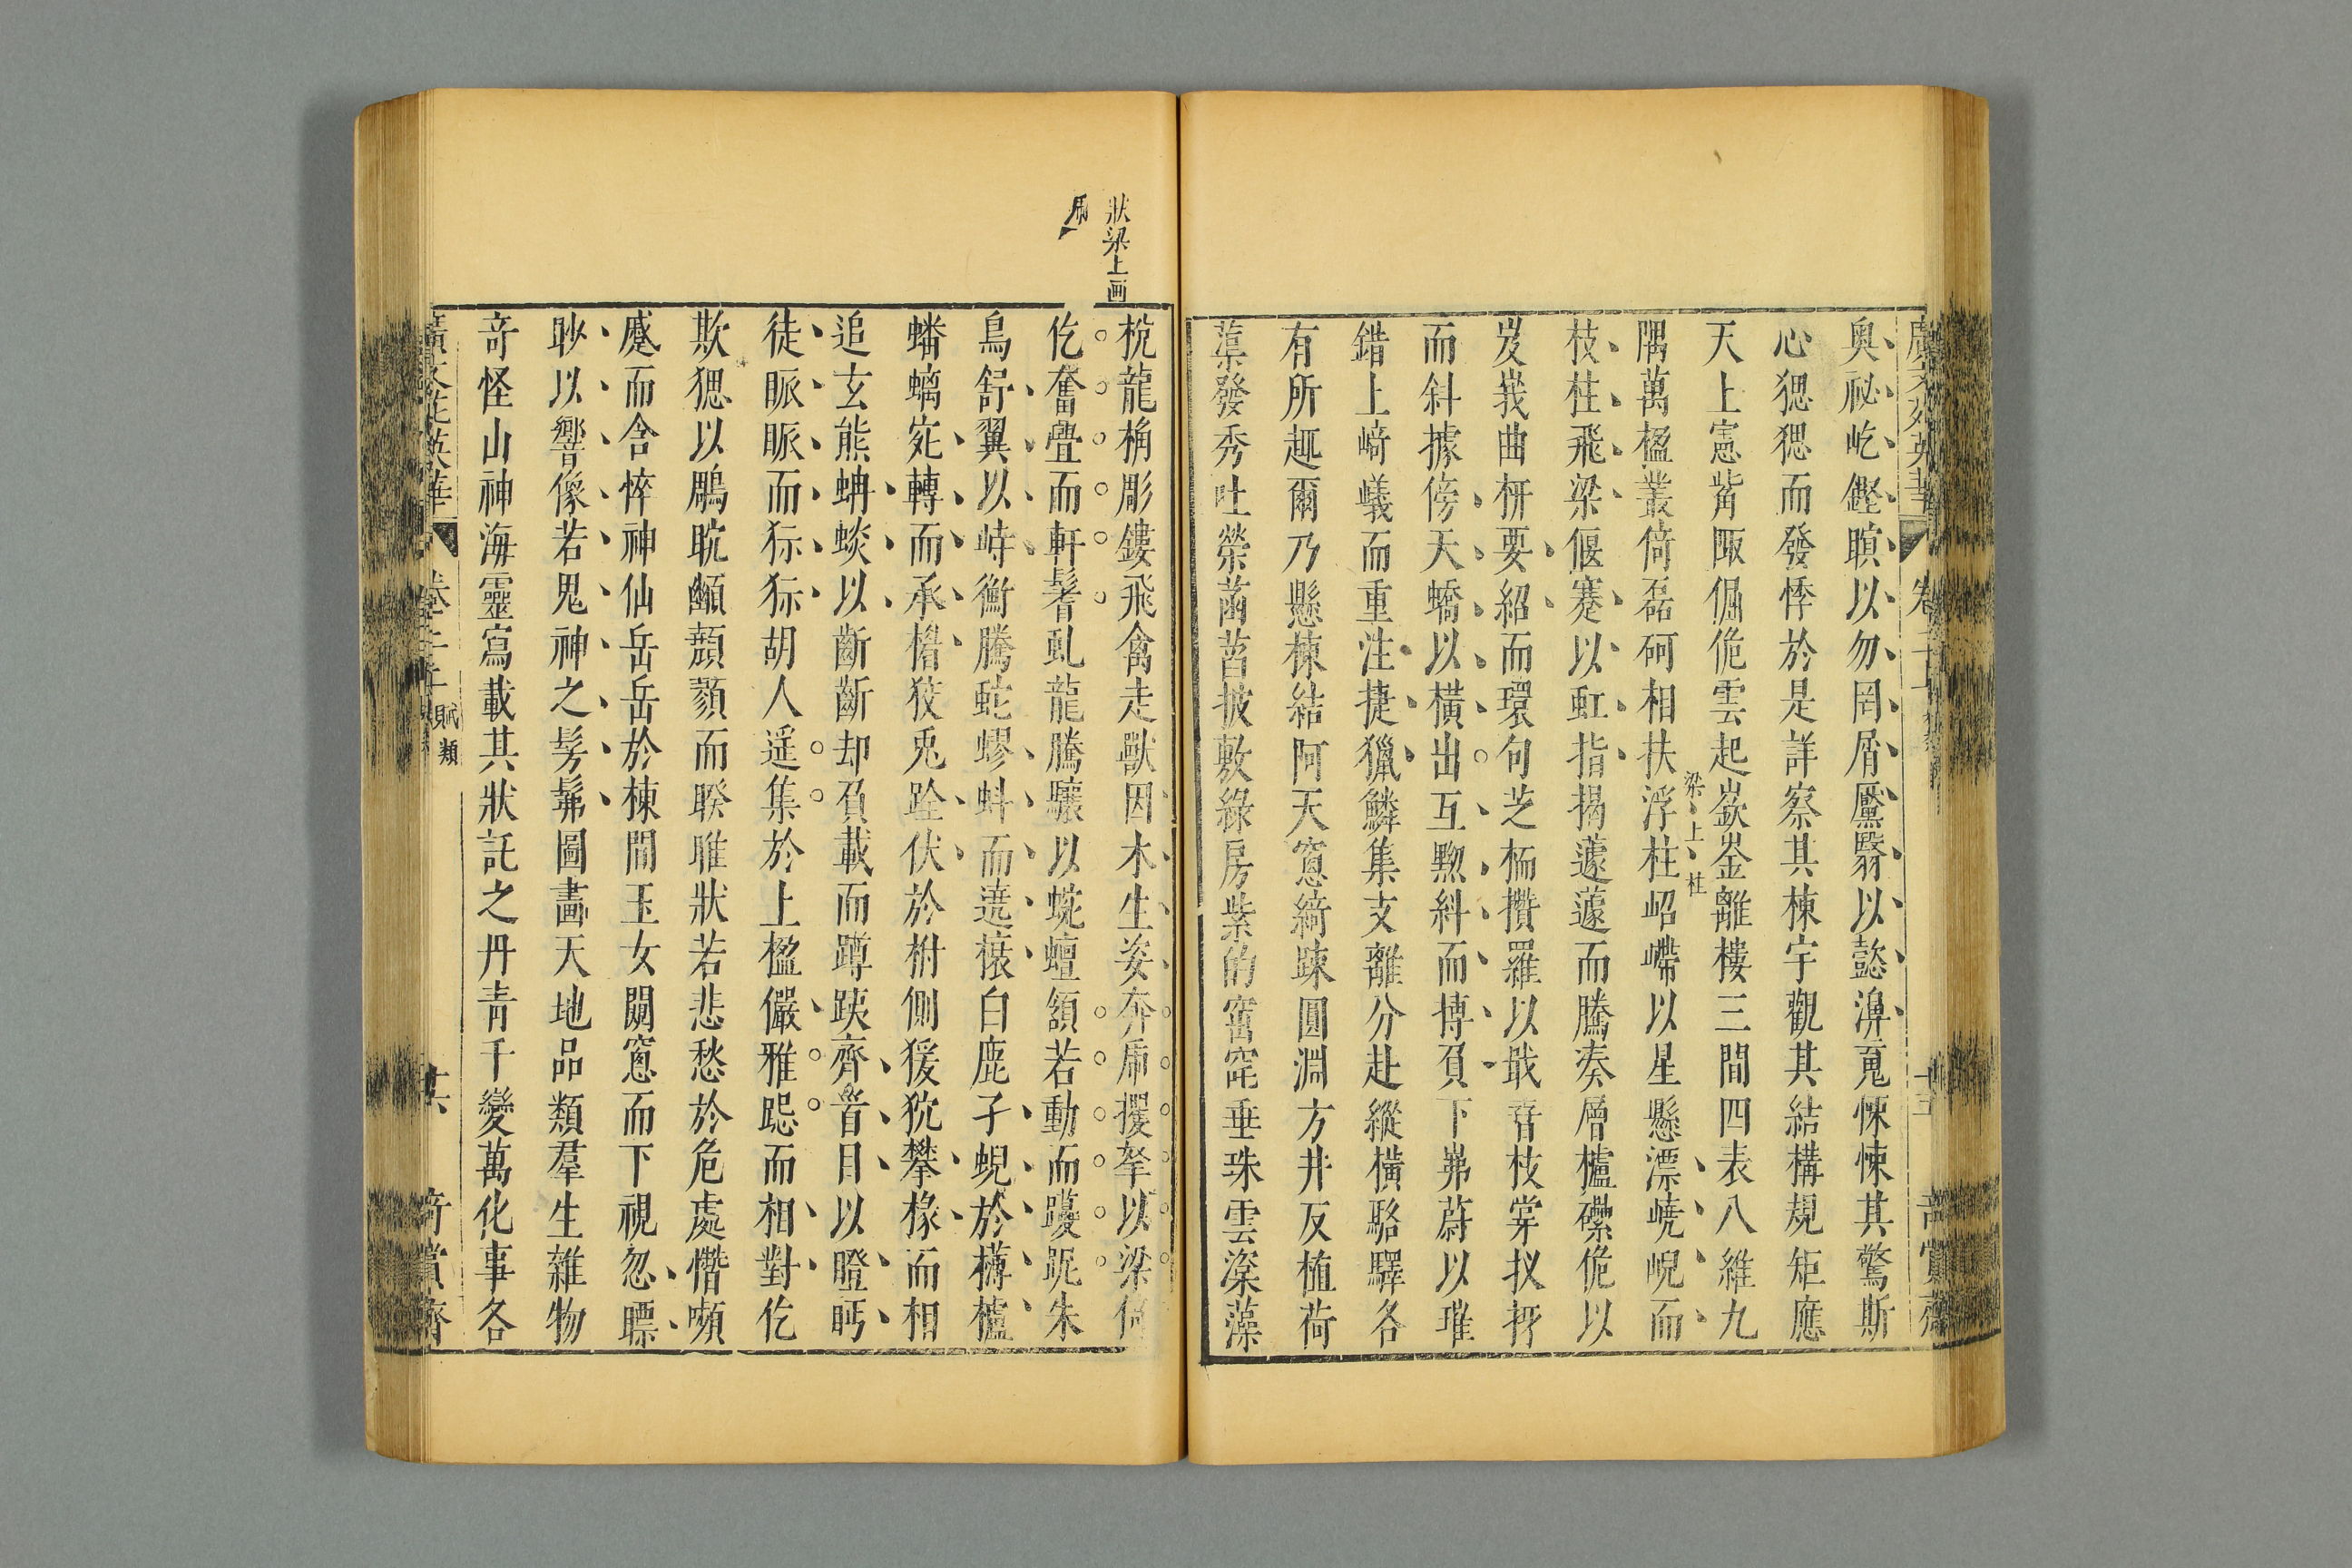 奧祕屹鏗瞑以勿罔屑黶翳以懿濞䰟悚悚其驚斯
心㥄㥄而發悸於是詳察其棟宇觀其結構規矩應
天上憲觜陬倔佹雲起嶔崟離樓三間四表八維九
隅萬楹叢倚磊砢相扶浮柱岧嵽以星懸漂嶢峴而
梁上柱
枝柱飛梁偃蹇以虹指揭蘧蘧而騰湊層櫨磥佹以
岌峩曲枅要紹而環句芝栭攢羅以戢孴枝掌杈枒
而斜據傍夭蟜以橫出互黝糾而博負下岪蔚以璀
錯上崎㠖而重注捷獵鱗集支離分赴縱橫駱驛各
有所趣爾乃懸棟結阿天窻綺疎圓淵方井反植荷
蕖發秀吐榮菡萏披敷綠房紫的窋窀垂珠雲楶藻
狀梁上画
梲龍桷彫鏤飛禽走獸因木生姿奔虎攫挐以梁倚
仡奮亹而軒鬐虬龍騰驤以蜿蟺頷若動而躨跜朱
鳥舒翼以峙衡騰蛇蟉虯而遶榱白鹿孑蜺於欂櫨
蟠螭宛轉而承楣狡兎跧伏於柎側猨狖攀椽而相
追玄熊蚺蛺以齗齗却負載而蹲跠齊首目以瞪眄
徒眽眽而狋狋胡人遥集於上楹儼雅跽而相對仡
欺㥄以鵰䀪䫜顤顟而睽睢狀若悲愁於危處憯嚬
蹙而含悴神仙岳岳於棟間玉女闚窻而下視忽瞟
眇以響像若鬼神之髣髴圖畵天地品類羣生雜物
奇怪山神海靈寫載其狀託之丹青千變萬化事各
賦類